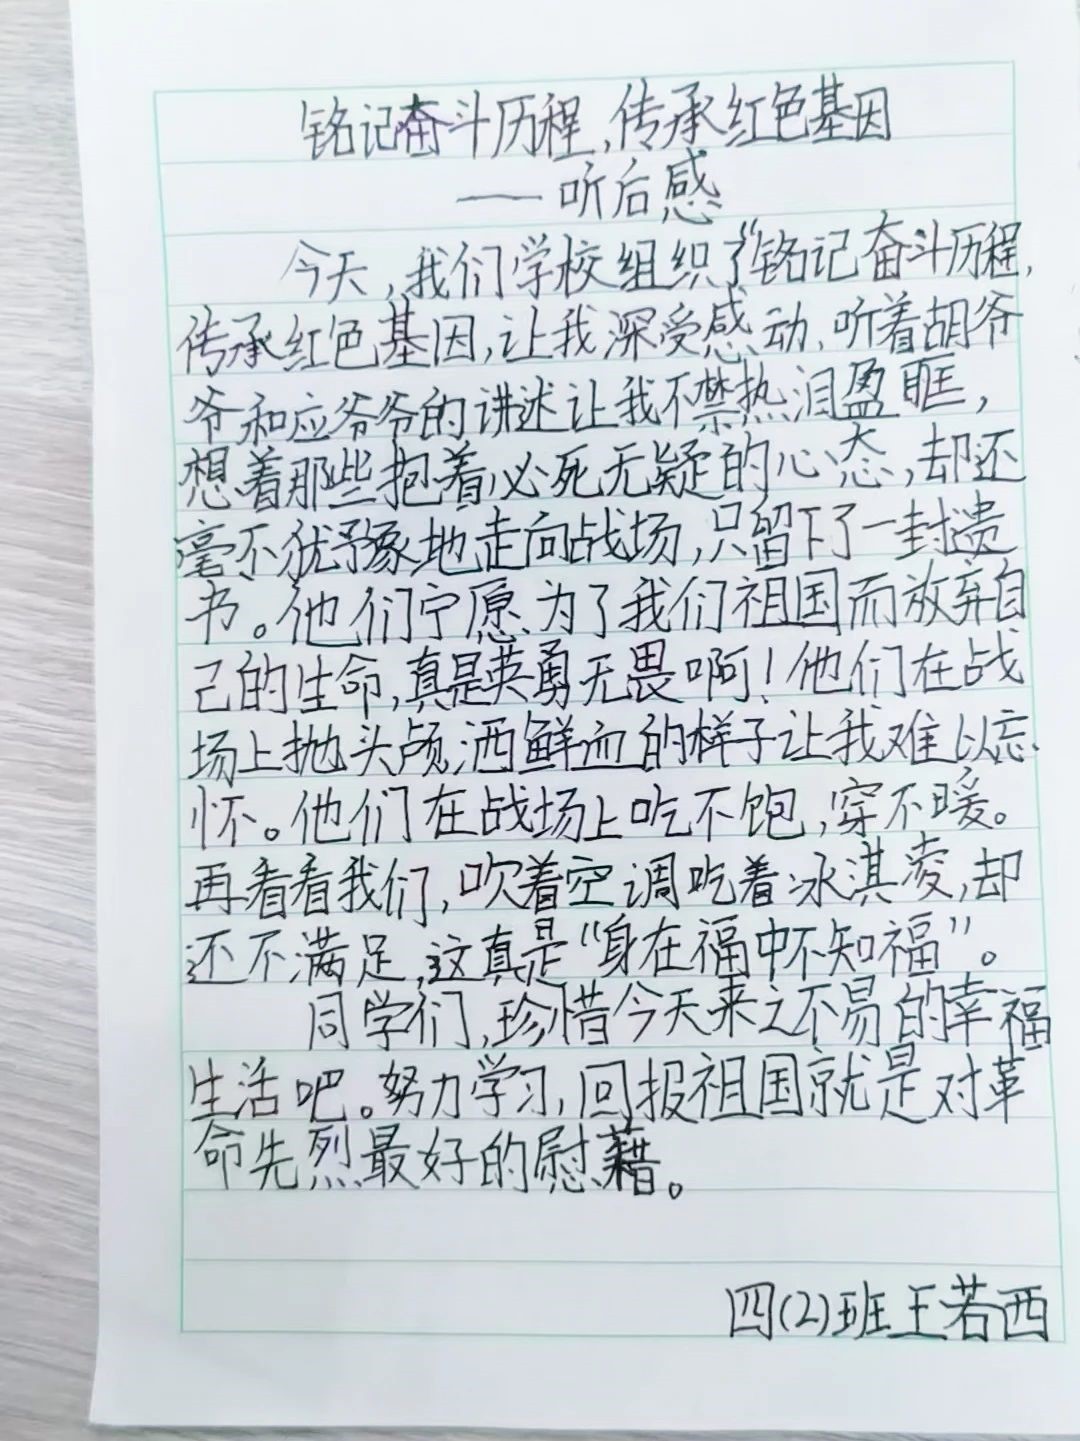 铭记奋斗历程,传承红色基因
——听后感
今天,我们学校组织了“铭记奋斗历程,
传承红色基因,让我深受感动,听着胡爷
爷和应爷爷的讲述让我不禁热泪盈眶,
想着那些抱着必死无疑的心态,却还
毫不犹豫地走向战场,只留下了一封遗
书。他们宁愿为了我们祖国而放弃自
己的生命,真是英勇无畏啊!他们在战
场上抛头颅,洒鲜血的样子让我难以忘
怀。他们在战场上吃不饱,穿不暖。
再看看我们,吹着空调吃着冰淇凌,却
还不满足,这真是“身在福中不知福”。
同学们,珍惜今天来之不易的幸福
生活吧。努力学习,回报祖国就是对革
命先烈最好的慰藉。
四(2)班王若西